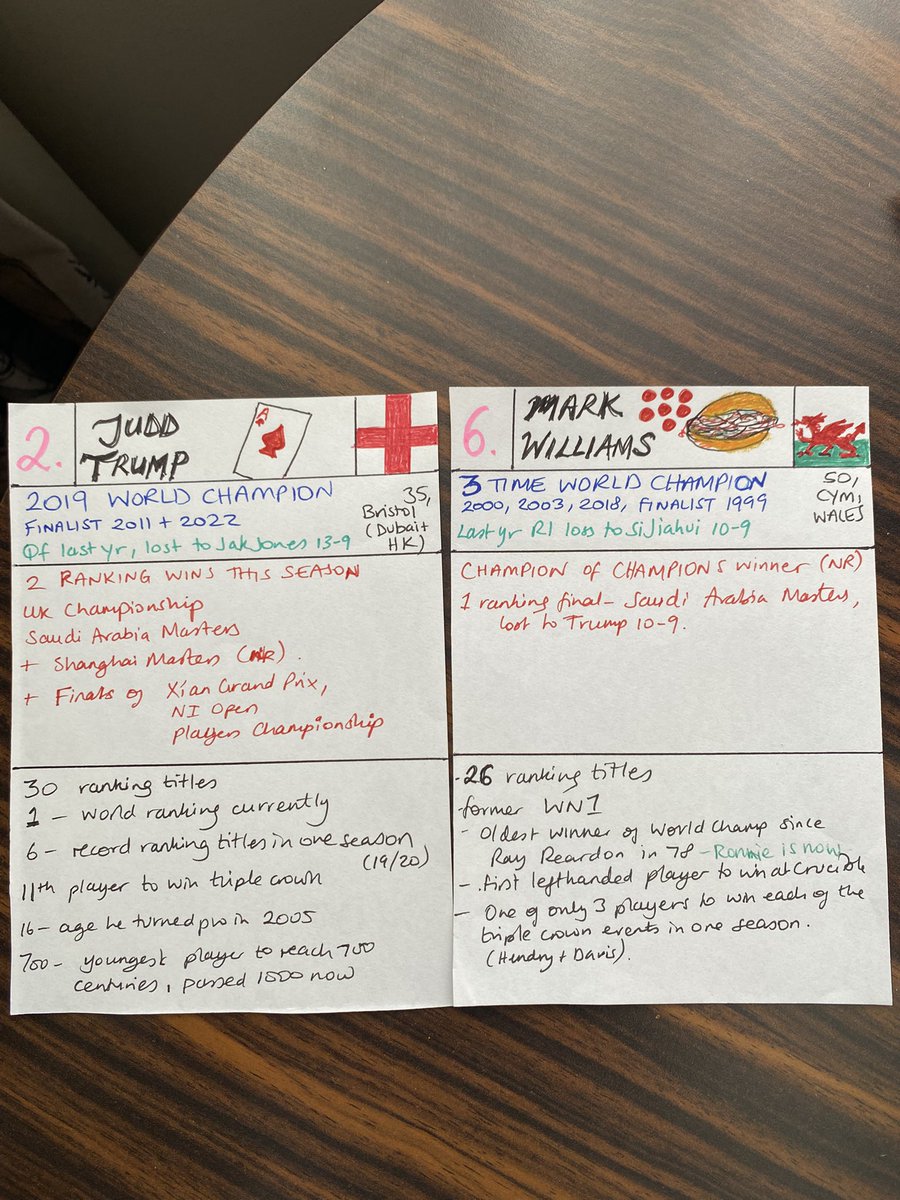 2.
JUDD
TRUMP
A
2019 WORLD CHAMPION
FINALIST 2011 + 2022
Qf last yr, lost to Jak Jones 13-9
35,
Bristol
(Dubai +
HK)
2 RANKING WINS THIS SEASON
UK Championship
Saudi Arabia Masters
+ Shanghai Masters (NR).
+ Finals of Xian Grand Prix,
NI Open
Players Championship
30 ranking titles
1 – world ranking currently
6 – record ranking titles in one season
(19/20)
11th player to win triple crown
16 – age he turned pro in 2005
700 – youngest player to reach 700
centuries, passed 1000 now
6.
MARK
WILLIAMS
3 TIME WORLD CHAMPION
2000, 2003, 2018, FINALIST 1999
Last yr R1 loss to Si Jiahui 10-9
50,
CYM,
WALES
CHAMPION of CHAMPIONS winner (NR)
1 ranking final – Saudi Arabia Masters,
lost to Trump 10-9.
-26 ranking titles
-former WN1
- Oldest winner of World Champ since
Ray Reardon in 78 – Ronnie is now
- first lefthanded player to win at Crucible
- One of only 3 players to win each of the
triple crown events in one season.
(Hendry + Davis).